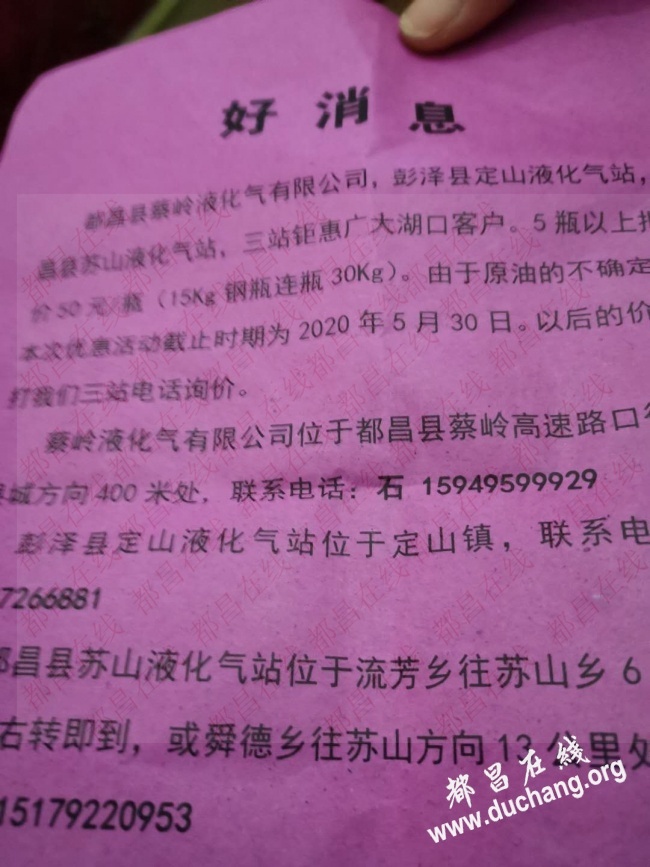 好消息
都昌县蔡岭液化气有限公司，彭泽县定山液化气站，
昌县苏山液化气站，三站钜惠广大湖口客户。5瓶以上批
价50元/瓶（15Kg 钢瓶连瓶 30Kg）。由于原油的不确定
本次优惠活动截止时期为 2020 年 5 月 30 日。以后的价
打我们三站电话询价。
蔡岭液化气有限公司位于都昌县蔡岭高速路口往
县城方向 400 米处，联系电话：石 15949599929
彭泽县定山液化气站位于定山镇，联系电
7266881
都昌县苏山液化气站位于流芳乡往苏山乡 6
右转即到，或舜德乡往苏山方向 13 公里处
15179220953
都昌在线
www.duchang.org